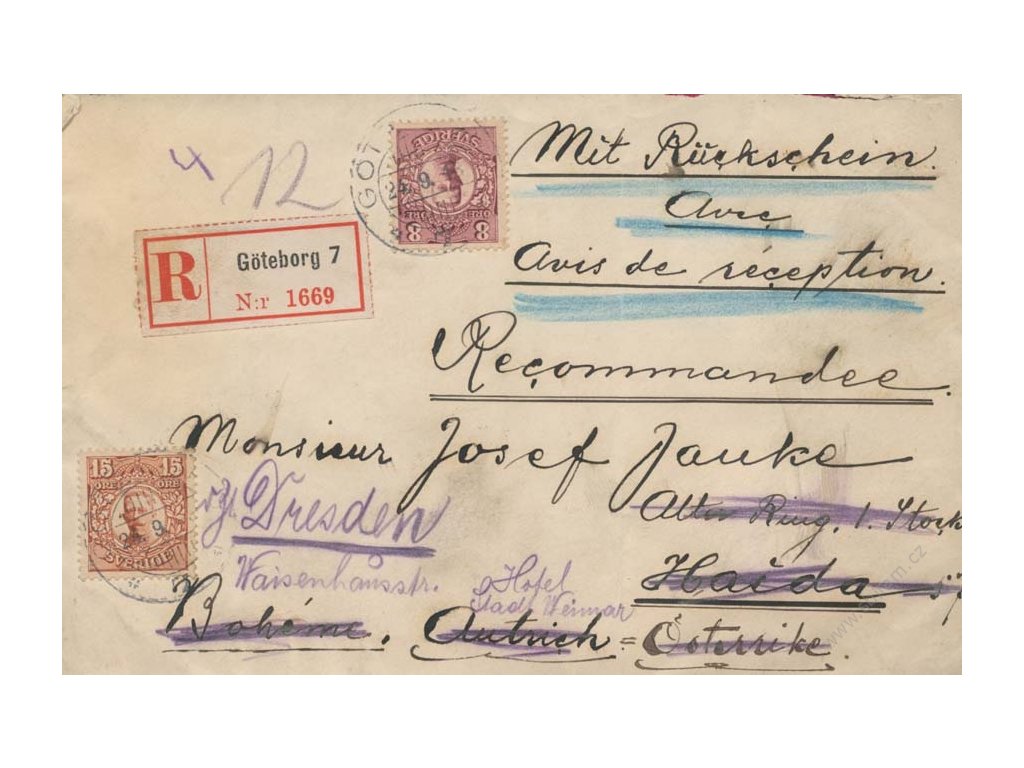 4 12
Mit Rückschein.
Avec
Avis de réception.
R Göteborg 7
N:r 1669
SVERIGE
ÖRE ÖRE
8 8
Reçommandee.
Monsieur Josef Jauke
15 15
ÖRE ÖRE
SVERIGE
Dresden
Alter Ring, 1. Stock
Waisenhausstr.
Hotel
Stadt Weimar
Haida
Bohéme, Autrich = Österrike.